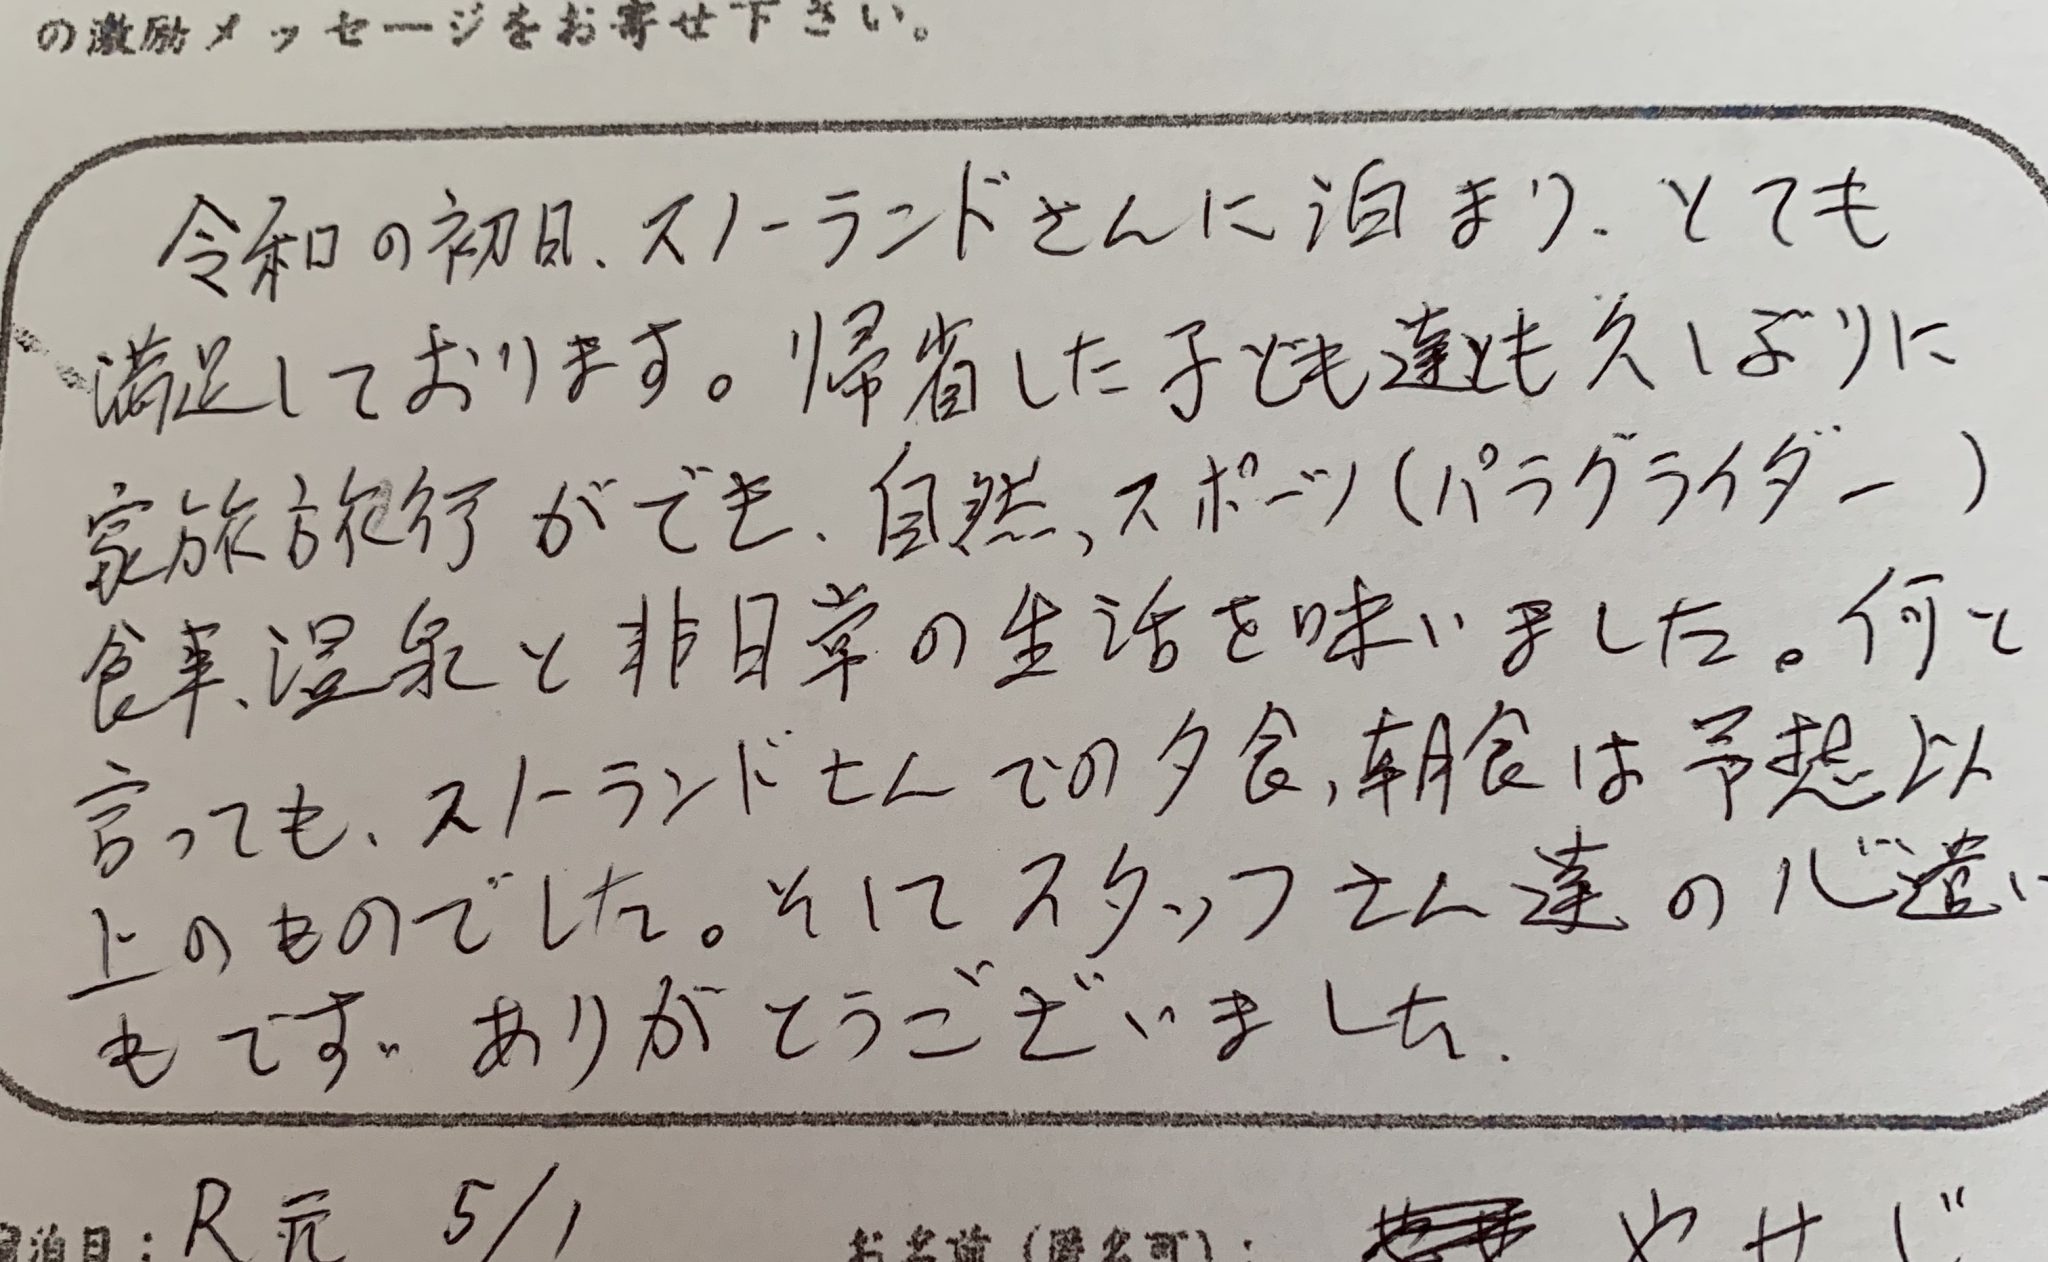 の激励メッセージをお寄せ下さい。
令和の初日、スノーランドさんに泊まり、とても
満足しております。帰省した子ども達とも久しぶりに
家族旅行ができ、自然、スポーツ(パラグライダー)
食事、温泉と非日常の生活を味いました。何と
言っても、スノーランドさんでの夕食、朝食は予想以
上のものでした。そしてスタッフさん達の心遣い
もです。ありがとうございました。
宿泊日：R元 5/1
お名前(匿名可)： やせじ